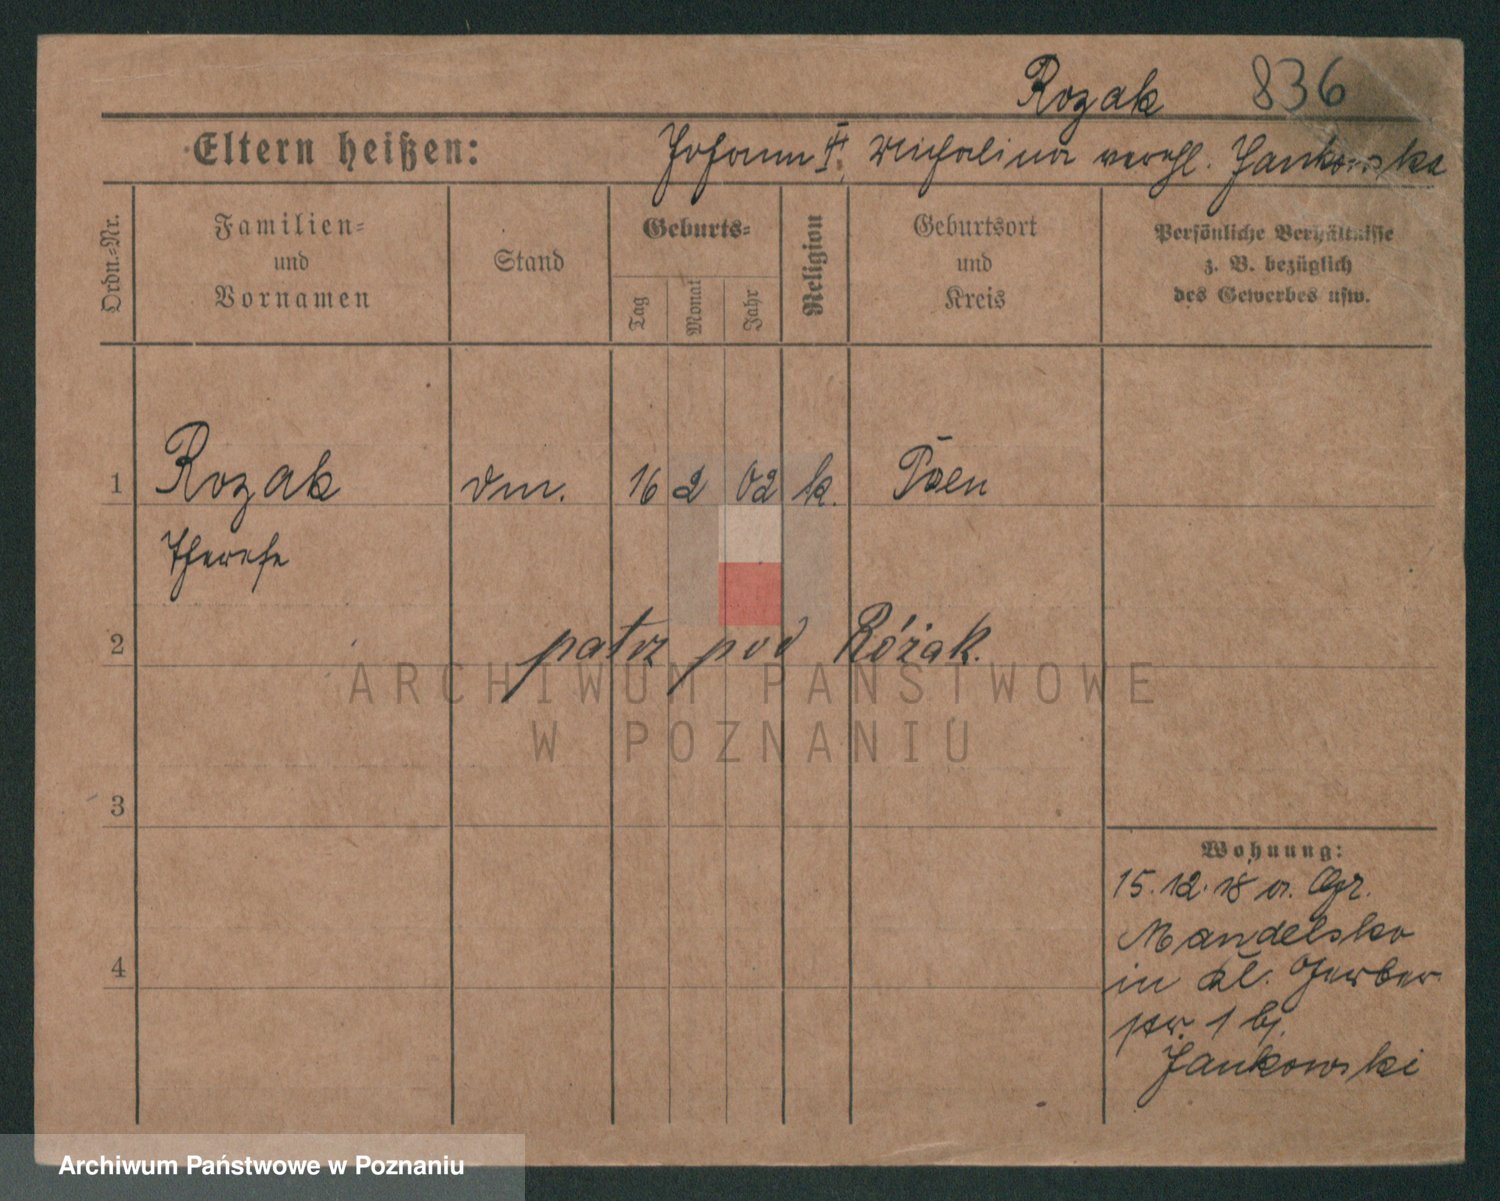 Rozak 836
Eltern heißen: Johann II. Michalina verehl. Jankowska
Ordn.-Nr.
Familien= und Vornamen
Stand
Geburts=
Tag Monat Jahr
Religion
Geburtsort und Kreis
Persönliche Verhältnisse z. B. bezüglich des Gewerbes usw.
1 Rozak dm. 16 2 02 k. Posen
Therese
2 patrz pod Różak.
ARCHIWUM PAŃSTWOWE
W POZNANIU
3
Wohnung:
15. 12. 18 a.
Mandelsko
4
in Kl. Gerber
str. 1 bj.
Jankowski
Archiwum Państwowe w Poznaniu